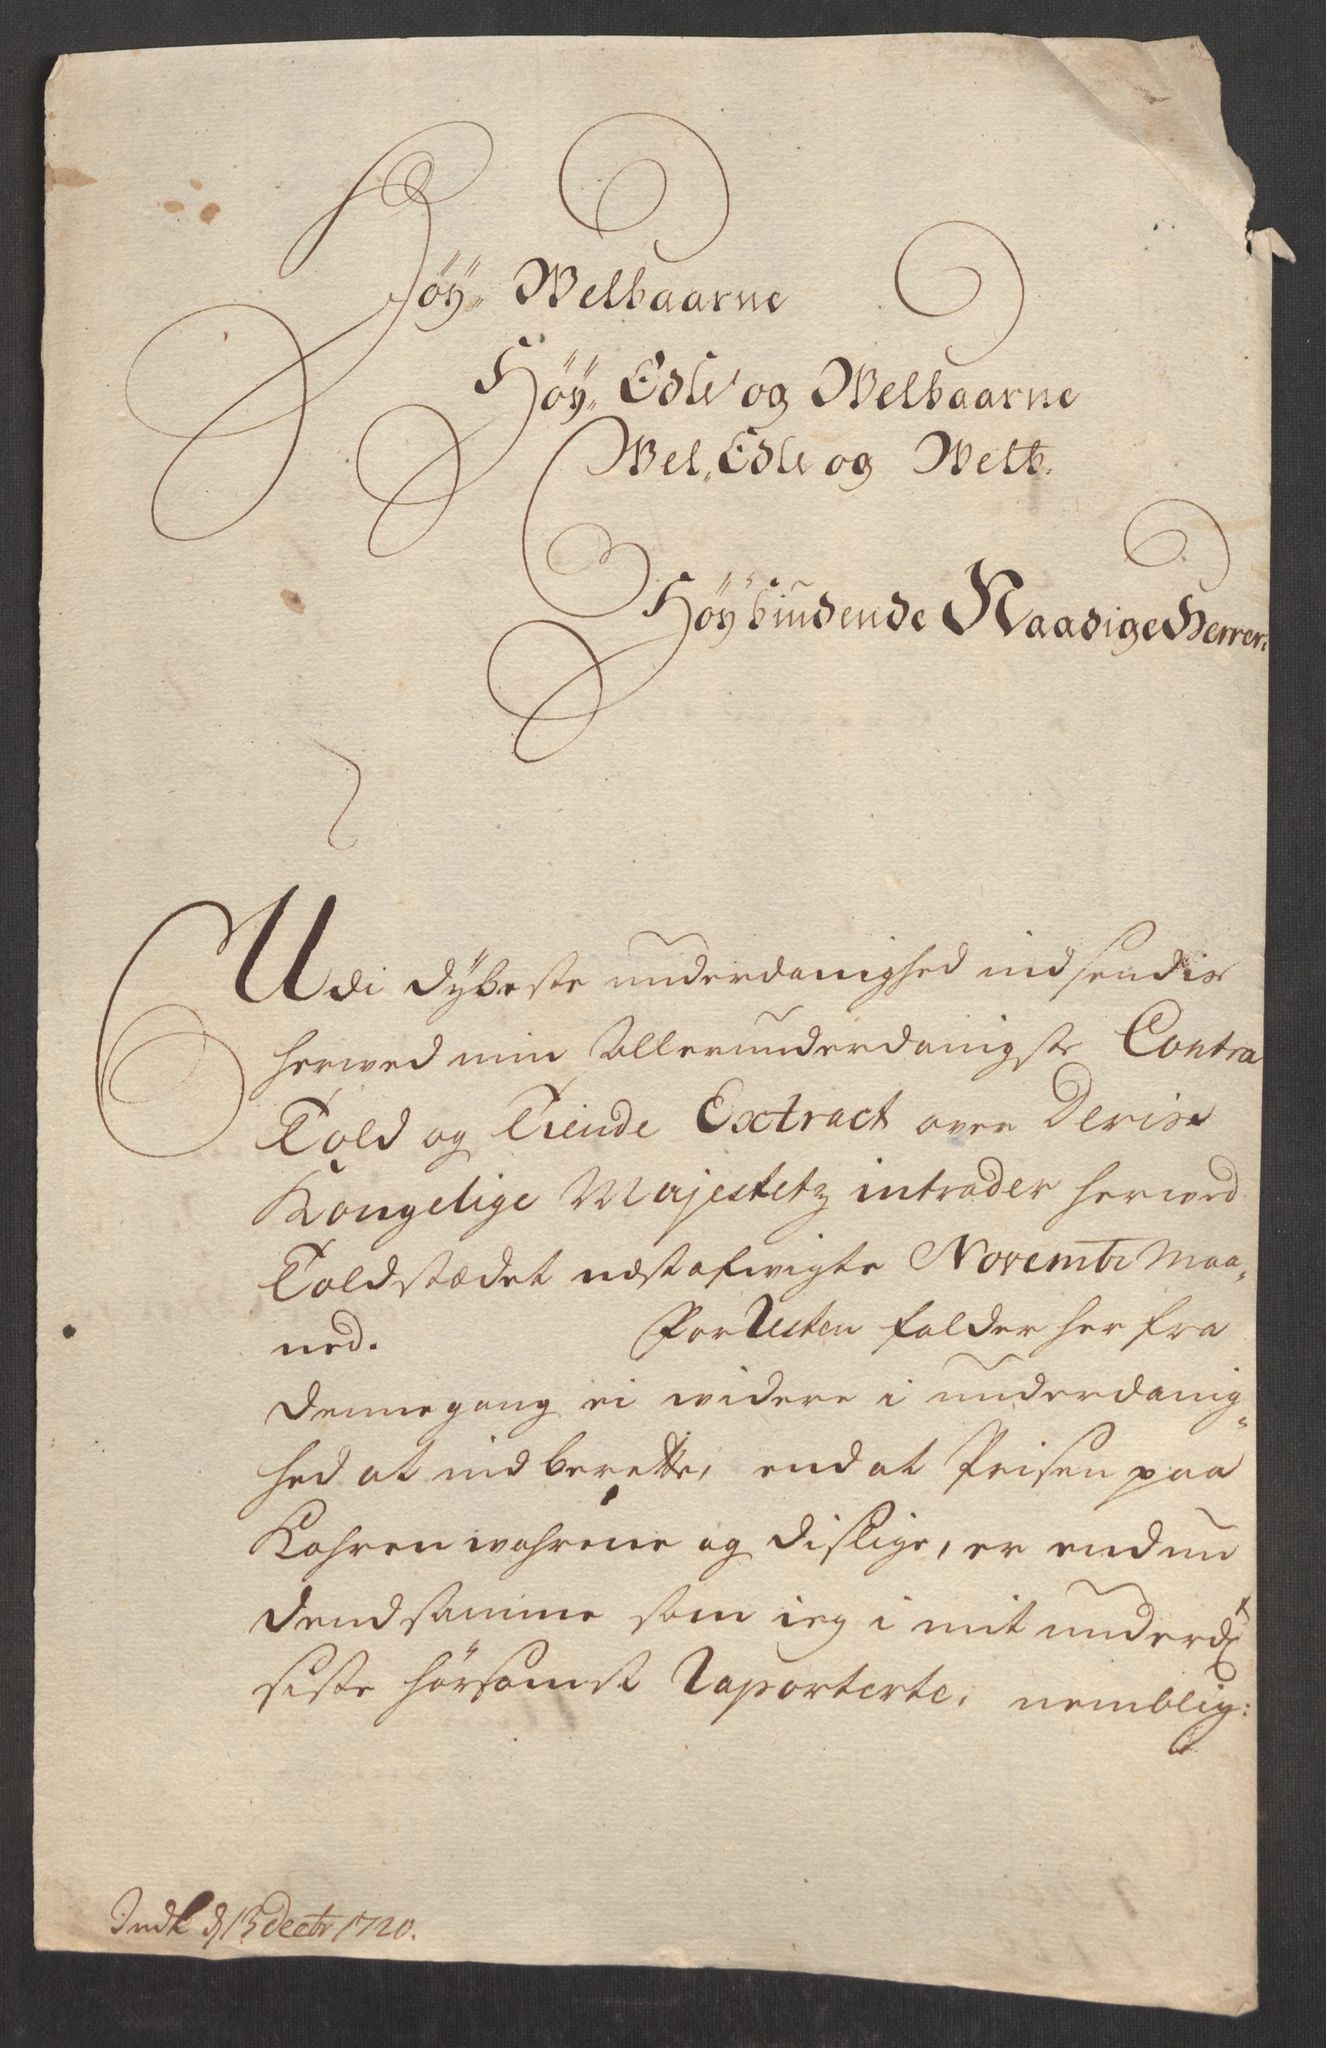 Høy- Welbaarne
Høy- Edle og Welbaarne
Wel- Edle og Welb.
Høybiudende Naadige Herrer.
Udi dÿbeste underdanighed indsendis
herved min allerunderdanigste Contra
Told og Tiende Extract over Deris
Kongelige Majestetz intrader herved
Toldstædet nest afvigte Novembr Maa-
ned. For Resten falder her fra
denne gang ei widere i underdanig-
hed at indberette, end at Prisen paa
Kohren wahrene og dislige, er endnu
dend samme som ieg i mit underd:
siste hørsomst Raporterte, nemblig:
Indk d 13 Decbr 1720.